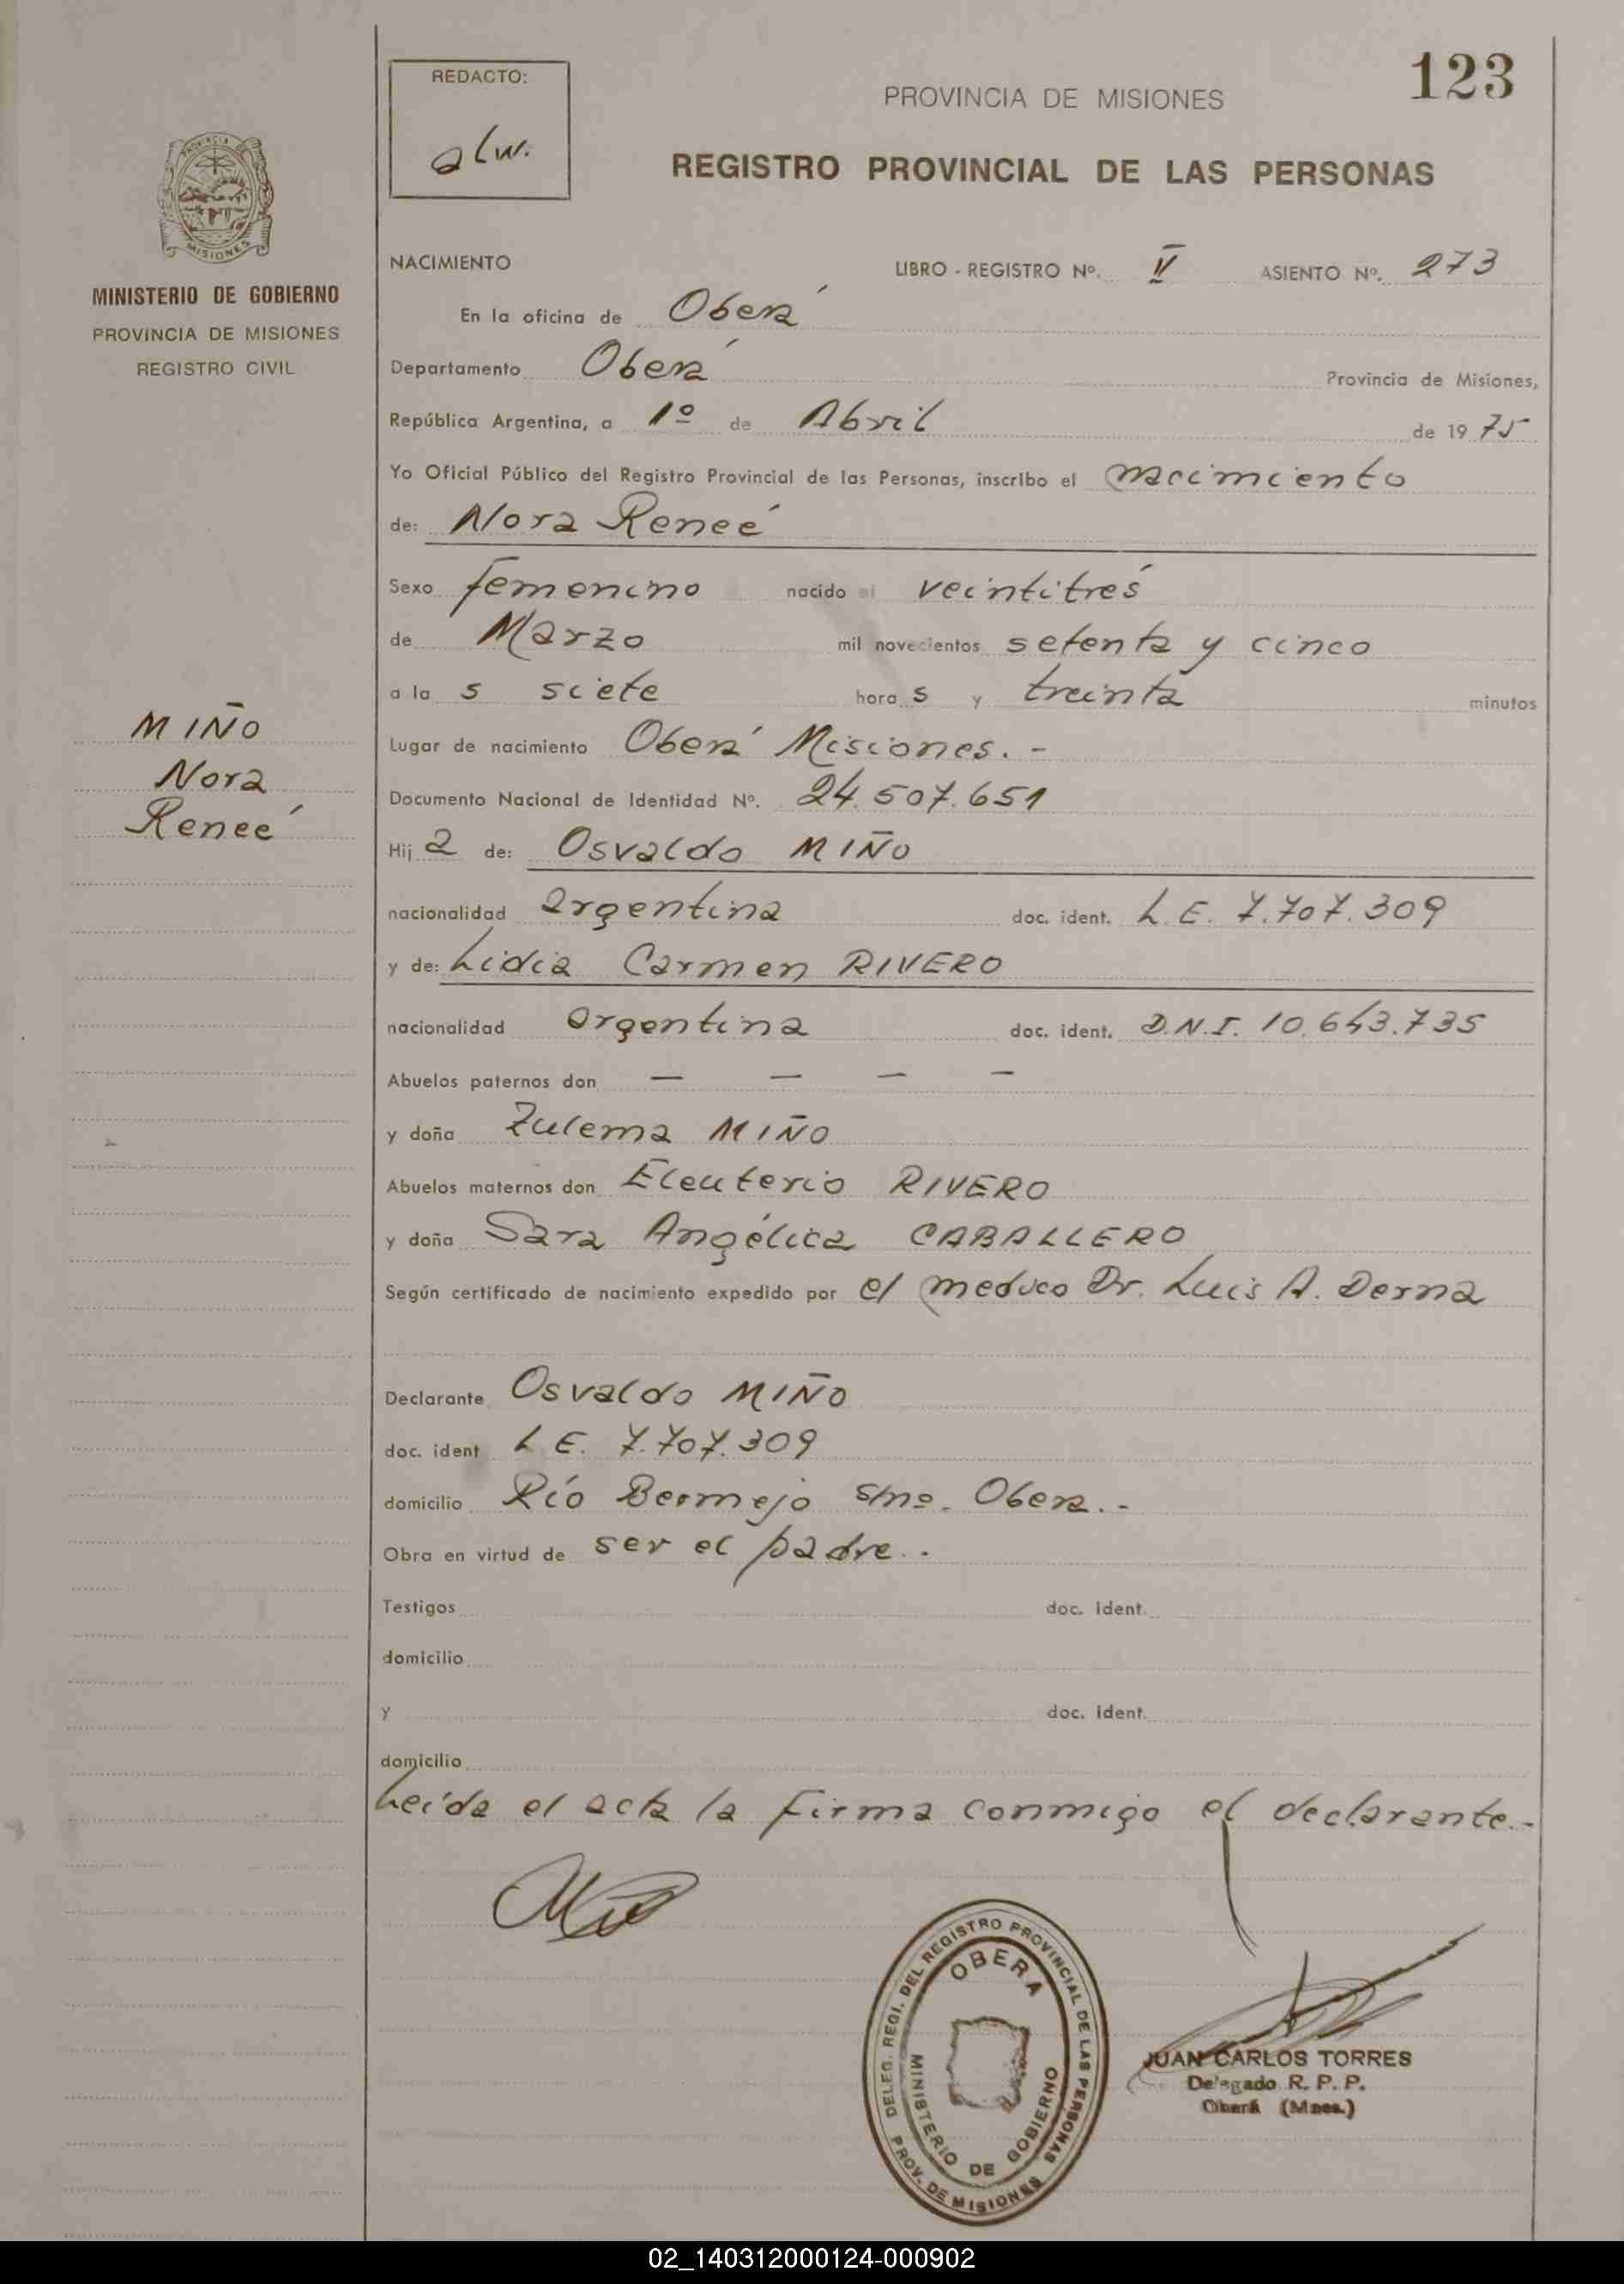 123
REDACTO:
alw.
PROVINCIA DE MISIONES
REGISTRO PROVINCIAL DE LAS PERSONAS
PROVINCIA DE
MISIONES
MINISTERIO DE GOBIERNO
PROVINCIA DE MISIONES
REGISTRO CIVIL
MIÑO
Nora
Reneé
NACIMIENTO LIBRO - REGISTRO Nº. II ASIENTO Nº. 273
En la oficina de Oberá
Departamento Oberá Provincia de Misiones,
República Argentina, a 1º de Abril de 1975
Yo Oficial Público del Registro Provincial de las Personas, inscribo el nacimiento
de: Nora Reneé
Sexo femenino nacido el veintitrés
de Marzo mil novecientos setenta y cinco
a la s siete hora s y treinta minutos
Lugar de nacimiento Oberá Misiones.-
Documento Nacional de Identidad Nº. 24.507.651
Hij a de: Osvaldo MIÑO
nacionalidad argentina doc. ident. L.E. 7.707.309
y de: Lidia Carmen RIVERO
nacionalidad argentina doc. ident. D.N.I. 10.643.735
Abuelos paternos don — — — —
y doña Zulema MIÑO
Abuelos maternos don Eleuterio RIVERO
y doña Sara Angélica CABALLERO
Según certificado de nacimiento expedido por el medico Dr. Luis A. Derna
Declarante Osvaldo MIÑO
doc. ident L.E. 7.707.309
domicilio Río Bermejo s/nº. Obera.-
Obra en virtud de ser el padre.-
Testigos doc. ident.
domicilio
y doc. ident.
domicilio
Leída el acta la firma conmigo el declarante.-
DELEG. REGI. DEL REGISTRO PROVINCIAL DE LAS PERSONAS
OBERA
MINISTERIO DE GOBIERNO
PROV. DE MISIONES
JUAN CARLOS TORRES
Delegado R. P. P.
Oberá (Mnes.)
02_140312000124-000902